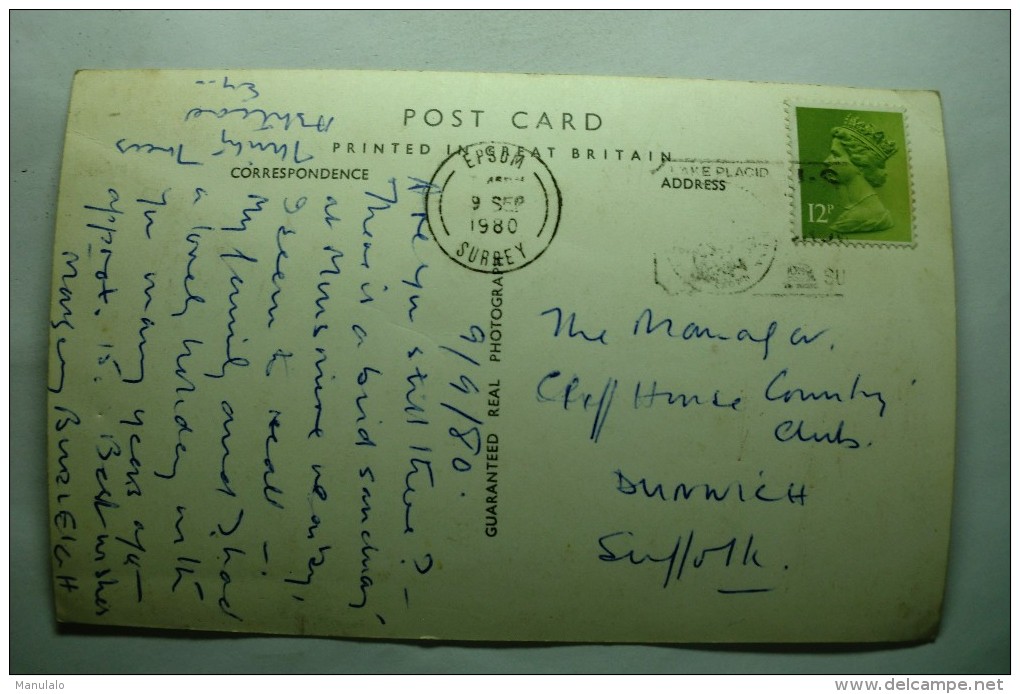 POST CARD
PRINTED IN GREAT BRITAIN
CORRESPONDENCE
ADDRESS
GUARANTEED REAL PHOTOGRAPH
EPSOM
9 SEP
1980
SURREY
LAKE PLACID
SU
12P
Ashtead
9/9/80.
Are you still there? –
There is a bird sanctuary
at Minsmere nearby,
I seem to recall –
My family and I had
a lovely holiday with
you many years ago –
approx. 15. Best wishes
Margery BURLEIGH
The Manager.
Cliff House Country
Club.
DUNWICH
Suffolk.
Manulalo
delcampe.net